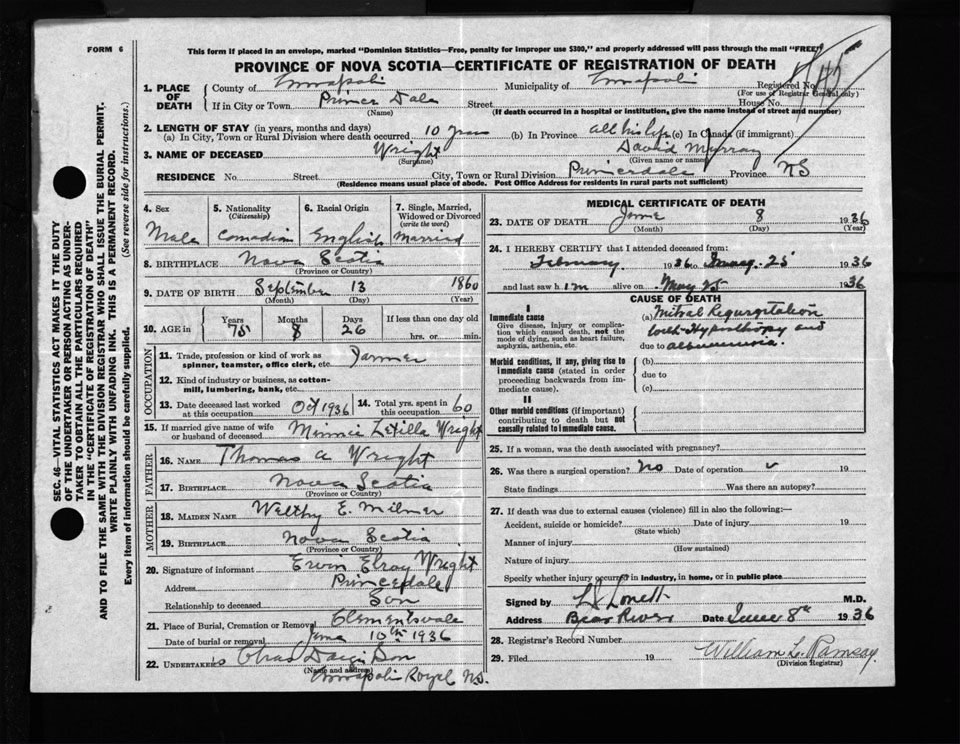 FORM 6
This form if placed in an envelope, marked "Dominion Statistics—Free, penalty for improper use $300," and properly addressed will pass through the mail "FREE"
PROVINCE OF NOVA SCOTIA—CERTIFICATE OF REGISTRATION OF DEATH
1. PLACE OF DEATH
County of Annapolis Municipality of Annapolis Registered No.
(For use of Registrar General only)
If in City or Town Princedale Street House No.
(Name) (If death occurred in a hospital or institution, give the name instead of street and number)
2. LENGTH OF STAY (in years, months and days)
(a) In City, Town or Rural Division where death occurred 10 years (b) In Province all his life (c) In Canada (if immigrant)
3. NAME OF DECEASED Wright David Murray
(Surname) (Given name or names)
RESIDENCE No. Street City, Town or Rural Division Princedale Province NS
(Residence means usual place of abode. Post Office Address for residents in rural parts not sufficient)
4. Sex
Male
5. Nationality
(Citizenship)
Canadian
6. Racial Origin
English
7. Single, Married, Widowed or Divorced
(write the word)
Married
8. BIRTHPLACE Nova Scotia
(Province or Country)
9. DATE OF BIRTH September 13 1860
(Month) (Day) (Year)
10. AGE in
Years Months Days If less than one day old
75 8 26 hrs. or min.
OCCUPATION
11. Trade, profession or kind of work as spinner, teamster, office clerk, etc. Farmer
12. Kind of industry or business, as cotton-mill, lumbering, bank, etc.
13. Date deceased last worked at this occupation Oct 1936
14. Total yrs. spent in this occupation 60
15. If married give name of wife or husband of deceased Minnie Letilla Wright
FATHER
16. NAME Thomas A Wright
17. BIRTHPLACE Nova Scotia
(Province or Country)
MOTHER
18. MAIDEN NAME Welthy E. Milner
19. BIRTHPLACE Nova Scotia
(Province or Country)
20. Signature of informant Ervin Elroy Wright
Address Princedale
Relationship to deceased Son
21. Place of Burial, Cremation or Removal Clementsvale
Date of burial or removal June 10th 1936
22. UNDERTAKER'S Son
(Name and address)
Annapolis Royal NS.
MEDICAL CERTIFICATE OF DEATH
23. DATE OF DEATH June 8 1936
(Month) (Day) (Year)
24. I HEREBY CERTIFY that I attended deceased from:
February 1936 to May 25 1936
and last saw him alive on May 25 1936
CAUSE OF DEATH
I
Immediate cause
Give disease, injury or complication which caused death, not the mode of dying, such as heart failure, asphyxia, asthenia, etc.
(a) Mitral Regurgitation
with Hypertrophy and
due to albuminuria.
Morbid conditions, if any, giving rise to immediate cause (stated in order proceeding backwards from immediate cause).
(b)
due to
(c)
II
Other morbid conditions (if important) contributing to death but not causally related to immediate cause.
25. If a woman, was the death associated with pregnancy?
26. Was there a surgical operation? No Date of operation 19
State findings Was there an autopsy?
27. If death was due to external causes (violence) fill in also the following:—
Accident, suicide or homicide? Date of injury 19
(State which)
Manner of injury
(How sustained)
Nature of injury
Specify whether injury occurred in industry, in home, or in public place
Signed by M.D.
Address Bear River Date June 8th 1936
28. Registrar's Record Number
29. Filed 19 William L. Ramsay.
(Division Registrar)
SEC. 46—VITAL STATISTICS ACT MAKES IT THE DUTY
OF THE UNDERTAKER OR PERSON ACTING AS UNDER-
TAKER TO OBTAIN ALL THE PARTICULARS REQUIRED
IN THE "CERTIFICATE OF REGISTRATION OF DEATH"
AND TO FILE THE SAME WITH THE DIVISION REGISTRAR WHO SHALL ISSUE THE BURIAL PERMIT.
WRITE PLAINLY WITH UNFADING INK. THIS IS A PERMANENT RECORD.
Every item of information should be carefully supplied. (See reverse side for instructions.)